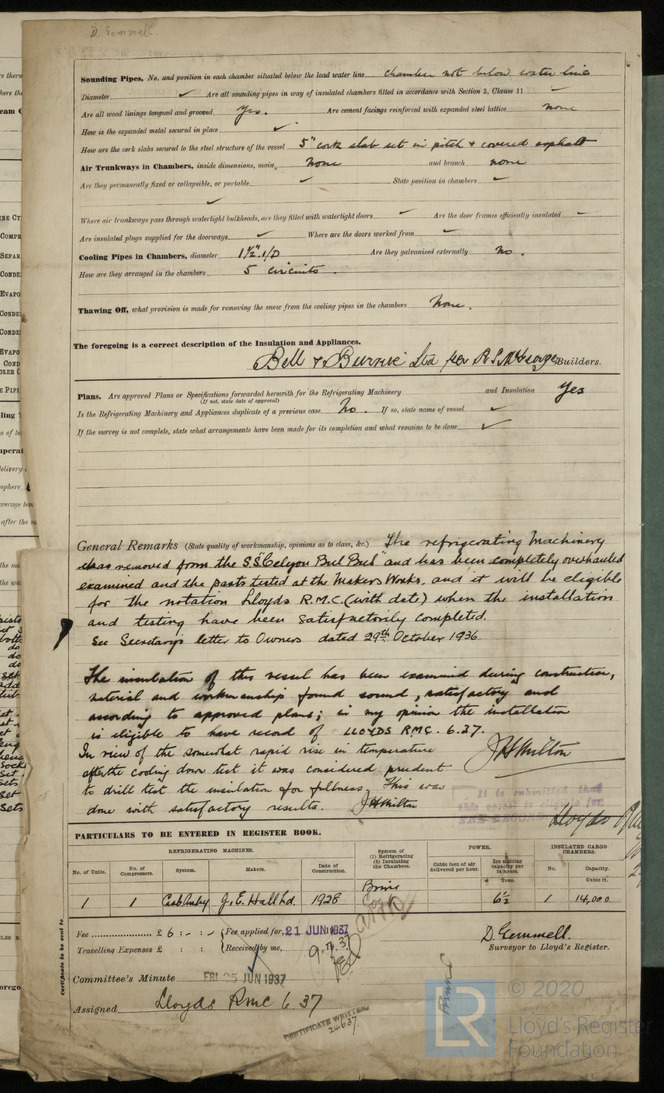 D. Gemmell
Sounding Pipes, No. and position in each chamber situated below the load water line chamber not below water line
Diameter ✓ Are all sounding pipes in way of insulated chambers fitted in accordance with Section 3, Clause 11 ✓
Are all wood linings tongued and grooved Yes. Are cement facings reinforced with expanded steel lattice none
How is the expanded metal secured in place ✓
How are the cork slabs secured to the steel structure of the vessel 5" cork slab set in pitch & covered asphalt
Air Trunkways in Chambers, inside dimensions, main, none and branch none
Are they permanently fixed or collapsible, or portable ✓ State position in chambers ✓
✓
Where air trunkways pass through watertight bulkheads, are they fitted with watertight doors ✓ Are the door frames efficiently insulated ✓
Are insulated plugs supplied for the doorways ✓ Where are the doors worked from ✓
Cooling Pipes in Chambers, diameter 1½" I/D Are they galvanised externally No.
How are they arranged in the chambers 5 circuits.
Thawing Off, what provision is made for removing the snow from the cooling pipes in the chambers None.
The foregoing is a correct description of the Insulation and Appliances.
Bell & Burnie Ltd per R.S. McGeorge Builders.
Plans. Are approved Plans or Specifications forwarded herewith for the Refrigerating Machinery and Insulation Yes
(If not, state date of approval)
Is the Refrigerating Machinery and Appliances duplicate of a previous case No. If so, state name of vessel ✓
If the survey is not complete, state what arrangements have been made for its completion and what remains to be done ✓
General Remarks (State quality of workmanship, opinions as to class, &c.) The refrigerating Machinery
was removed from the S.S. and has been completely overhauled
examined and the parts tested at the Makers Works, and it will be eligible
for the notation Lloyds R.M.C. (with date) when the installation
and testing have been satisfactorily completed.
See Secretarys letter to Owners dated 29th October 1936
The insulation of this vessel has been examined during construction,
material and workmanship found sound, satisfactory and
according to approved plans; in my opinion the installation
is eligible to have record of LLOYDS RMC. 6.37.
In view of the somewhat rapid rise in temperature J H Milton
after the cooling down test it was considered prudent
to drill test the insulation for fullness. This was
done with satisfactory results. J H Milton
It is submitted that
this vessel is eligible for
Lloyds
PARTICULARS TO BE ENTERED IN REGISTER BOOK.
REFRIGERATING MACHINES. System of (1) Refrigerating (2) Insulating the Chambers. POWER. INSULATED CARGO CHAMBERS.
No. of Units. No. of Compressors. System. Makers. Date of Construction. Cubic feet of air delivered per hour. Ice making capacity per 24 hours. Tons. No. Capacity. Cubic ft.
Brine
1 1 Carb Anhy J. E. Hall Ltd. 1928 Cork 6½ 1 14,000
Fee £ 6 : - : - Fee applied for, 21 JUN 1937
Travelling Expenses £ : : Received by me,
D. Gemmell.
Surveyor to Lloyd's Register.
Committee's Minute FRI 25 JUN 1937
Assigned Lloyds RMC 6 37
CERTIFICATE WRITTEN
Certificate to be sent to
LR
© 2020
Lloyd's Register
Foundation